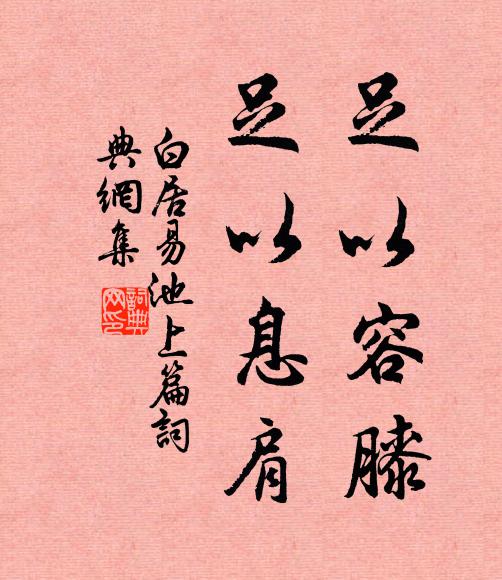 足以容膝
足以息肩
白居易池上篇詞
典網集
詞典
网印